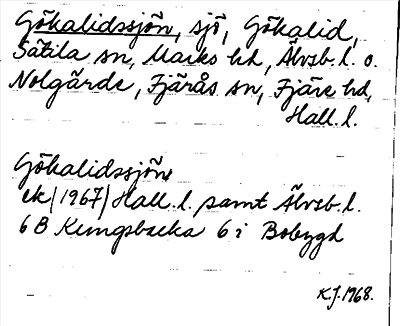 Gökalidssjön, sjö, Gökalid,
Sätila sn, Marks hd, Älvsb. l. o.
Nolgärde, Fjärås sn, Fjäre hd,
Hall. l.
Gökalidssjön
ek/1967/Hall. l. samt Älvsb. l.
6 B Kungsbacka 6 i Bobygd
KJ. 1968.